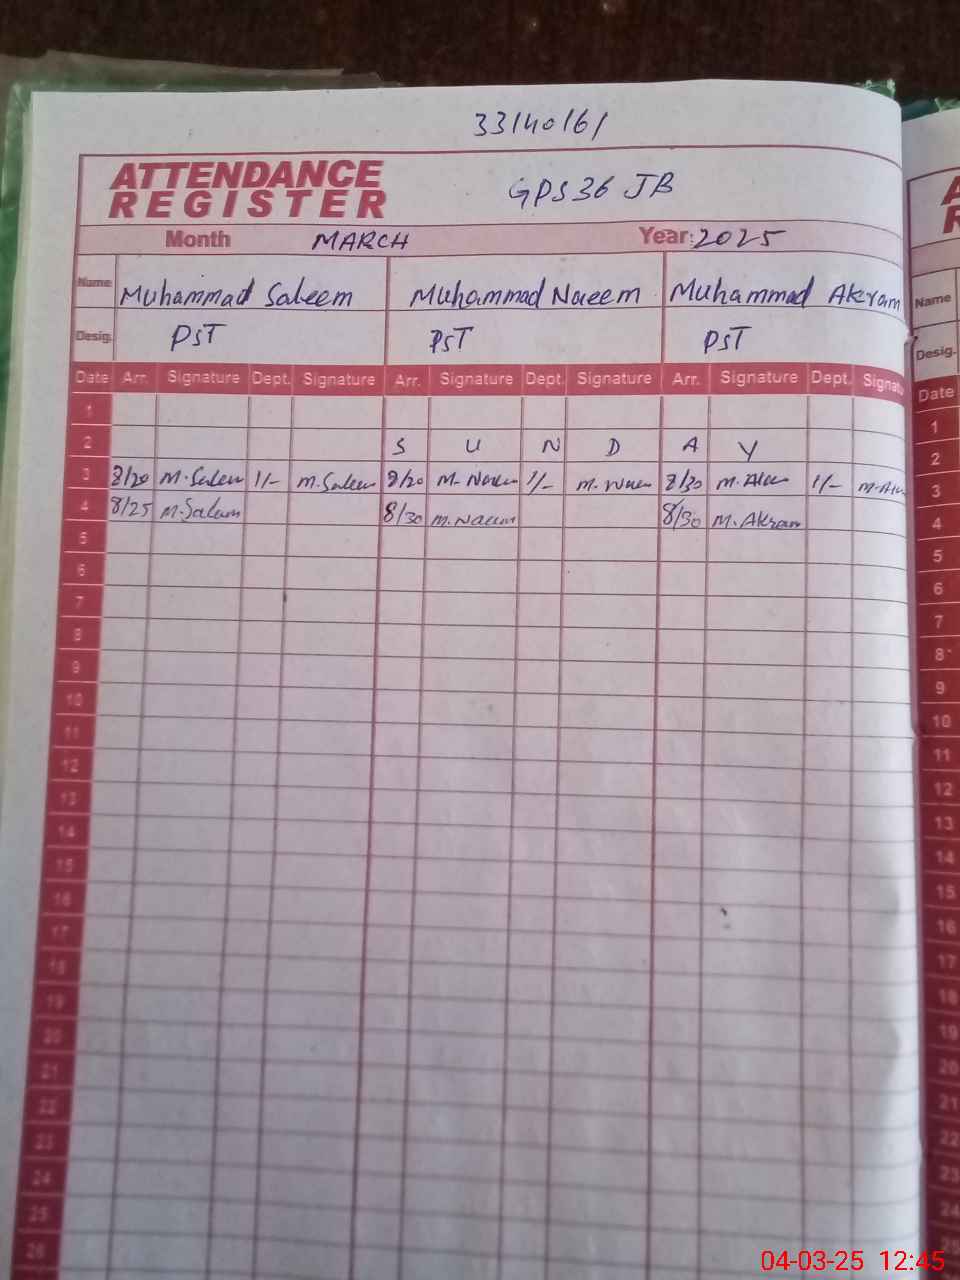 33140161
ATTENDANCE
REGISTER
GPS 36 JB
Month MARCH Year: 2025
Name Muhammad Saleem Muhammad Naeem Muhammad Akram Name
Desig. PST PST PST Desig.
Date Arr. Signature Dept. Signature Arr. Signature Dept. Signature Arr. Signature Dept. Signatu Date
1 1
2 S U N D A Y 2
3 8/20 M. Saleem 1/- M. Saleem 8/20 M. Naeem 1/- M. Naeem 8/30 1/- 3
4 8/25 M. Saleem 8/30 M. Naeem 8/30 M. Akram 4
5 5
6 6
7 7
8 8
9 9
10 10
11 11
12 12
13 13
14 14
15 15
16 16
17 17
18 18
19 19
20 20
21 21
22 22
23 23
24 24
25 25
26
04-03-25 12:45